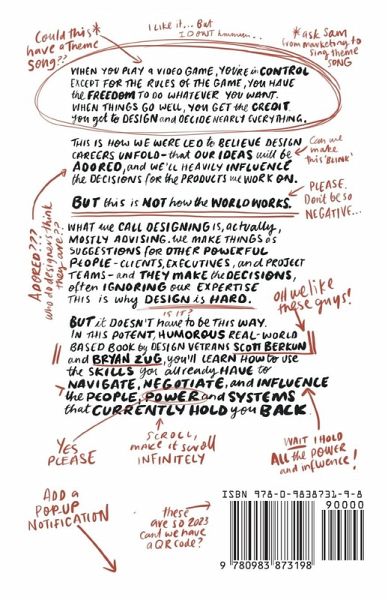 Could this*
have a Theme
song??
I like it... But
I DONT hmmm...
*ask Sam
from marketing to
sing theme
SONG
WHEN YOU PLAY A VIDEO GAME, YOU're in CONTROL
EXCEPT FOR THE RULES OF THE GAME, YOU HAVE
the FREEDOM TO DO WHATEVER YOU WANT.
WHEN THINGS GO WELL, YOU GET the CREDIT.
You get to DESIGN and DECIDE NEARLY EVERYTHING.
THIS IS HOW WE WERE LED to BELIEVE DESIGN
CAREERS UNFOLD-that OUR IDEAS will be
ADORED, and WE'LL HEAVILY INFLUENCE
the DECISIONS FOR the PRODUCTS WE WORK ON.
Can we
make
this 'BLINK'
BUT this is NOT how the WORLD WORKS.
PLEASE.
Don't be so
NEGATIVE...
ADORED???
who do designers think
they are??
WHAT we CALL DESIGNING is, actually,
MOSTLY ADVISING. We MAKE THINGS as
SUGGESTIONS FOR OTHER POWERFUL
PEOPLE-CLIENTS, EXECUTIVES, and PROJECT
TEAMS-and THEY MAKE the DECISIONS,
often IGNORING OUR EXPERTISE
THIS is why DESIGN is HARD.
IS IT?
oH we like
these guys!
BUT it DOESN'T have to BE THIS WAY.
IN THIS POTENT, HUMOROUS REAL-WORLD
BASED BOOK by DESIGN VETRANS SCOTT BERKUN
and BRYAN ZUG, you'll LEARN HOW to USE
the SKILLS you allready HAVE to
NAVIGATE, NEGOTIATE, and INFLUENCE
the PEOPLE, POWER and SYSTEMS
that CURRENTLY HOLD you BACK.
YES
PLEASE
SCROLL,
make it scroll
INFINITELY
WAIT I HOLD
ALL the POWER
and influence!
ADD a
POP-UP
NOTIFICATION
these
are so 2023
can't we have
a QR code?
ISBN 978-0-9838731-9-8
90000
9 780983 873198